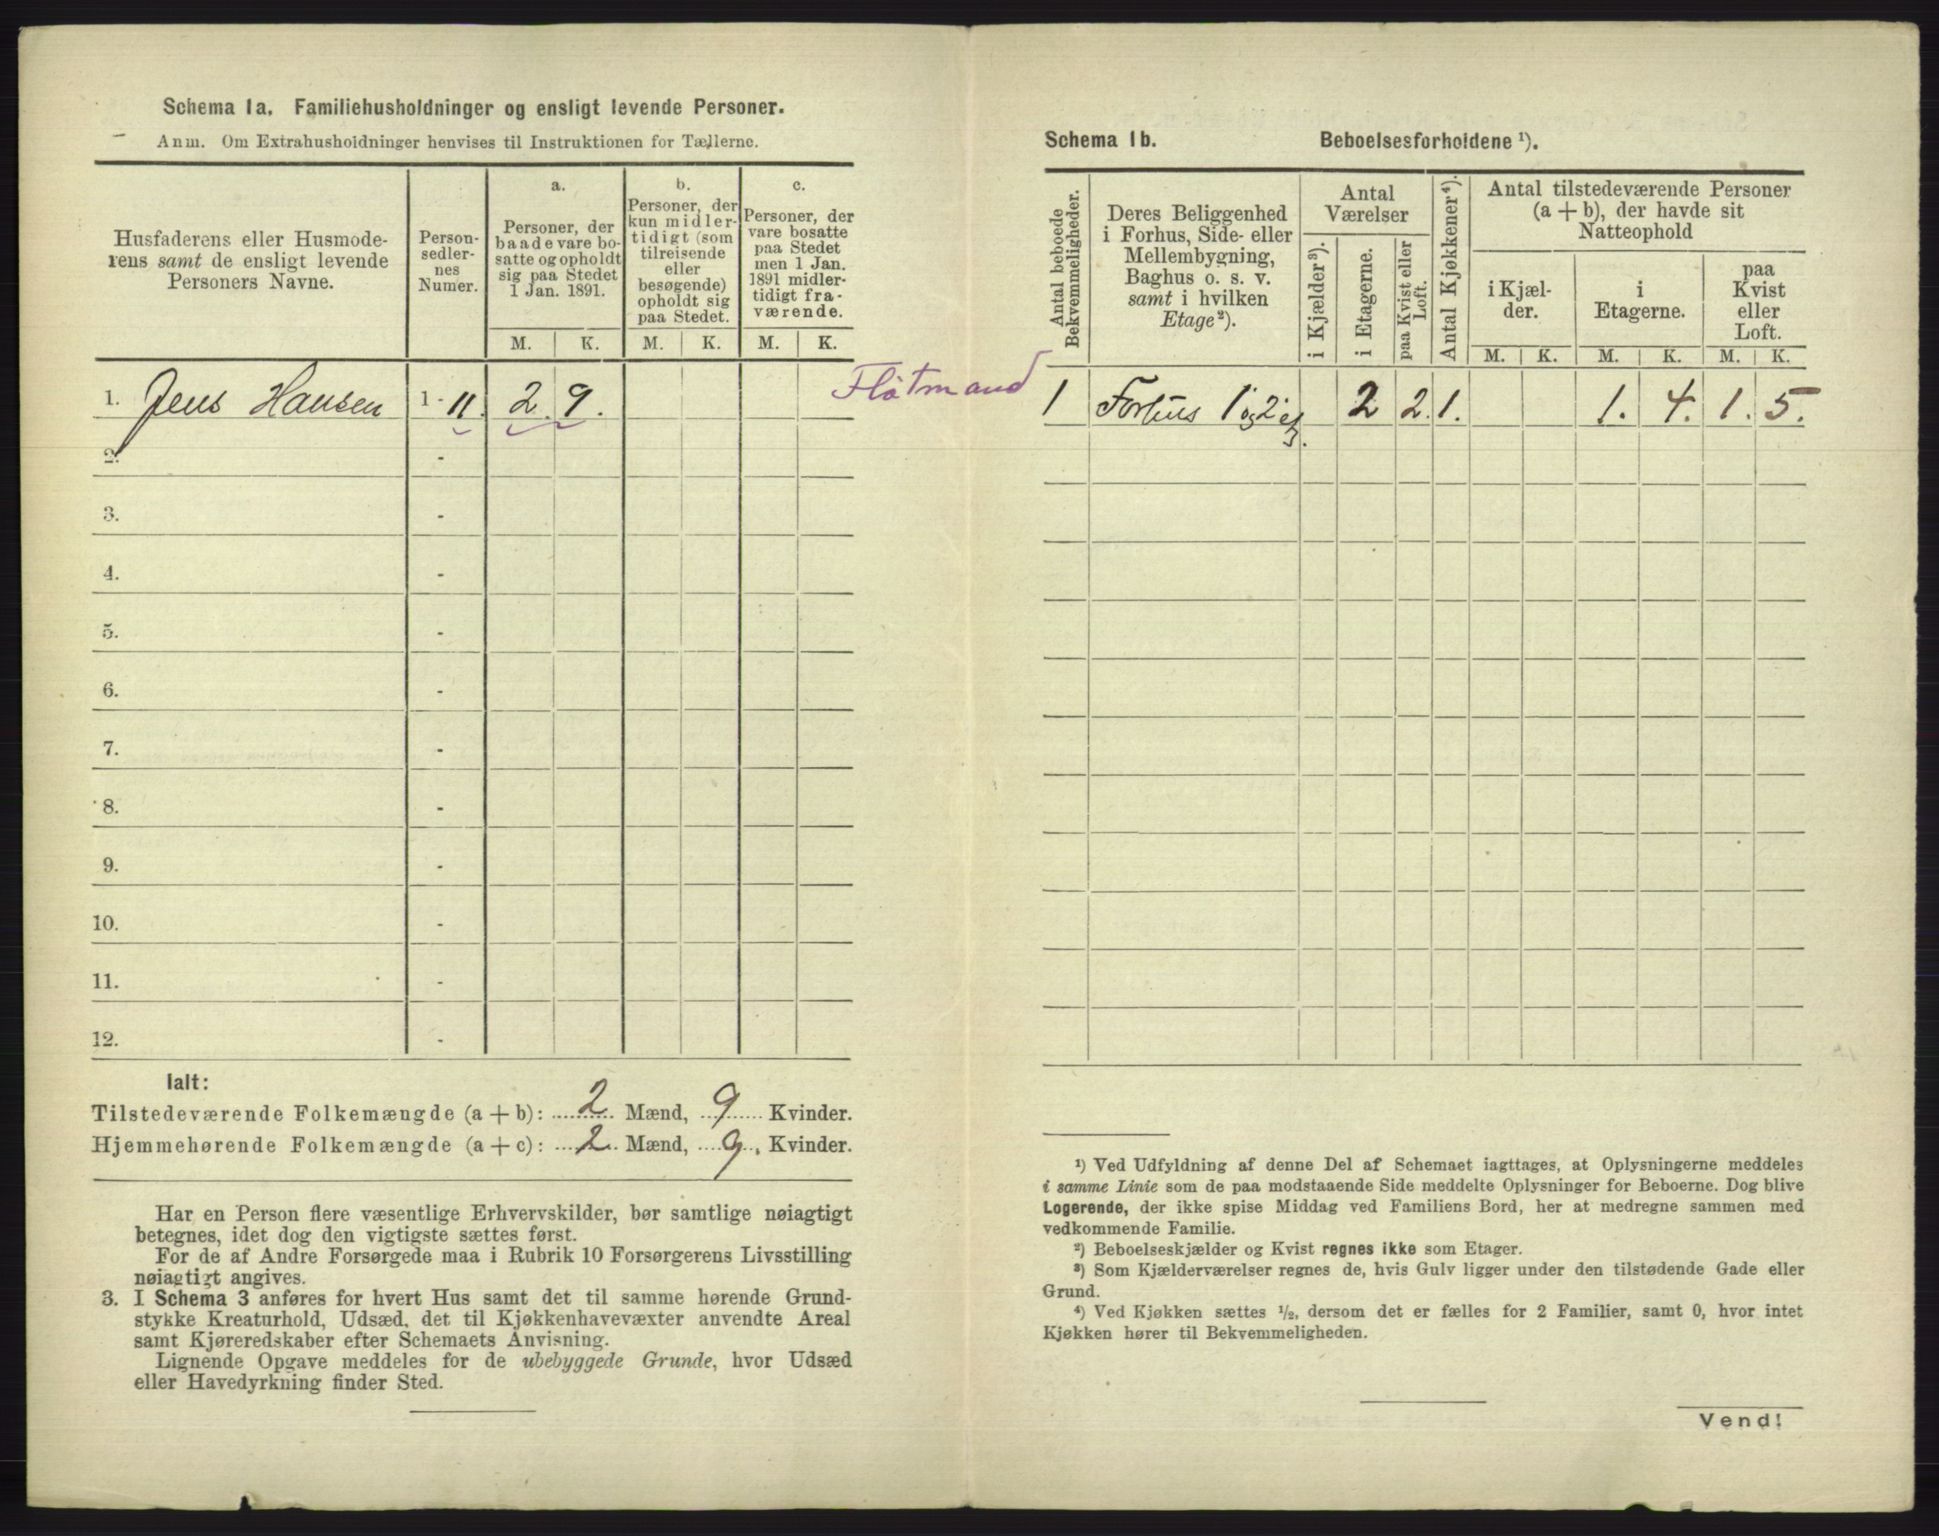 Schema 1a. Familiehusholdninger og ensligt levende Personer.
Anm. Om Extrahusholdninger henvises til Instruktionen for Tællerne.
Husfaderens eller Husmode-
rens samt de ensligt levende
Personers Navne.
Person-
sedler-
nes
Numer.
a.
Personer, der
baade vare bo-
satte og opholdt
sig paa Stedet
1 Jan. 1891.
b.
Personer, der
kun midler-
tidigt (som
tilreisende
eller
besøgende)
opholdt sig
paa Stedet.
c.
Personer, der
vare bosatte
paa Stedet
men 1 Jan.
1891 midler-
tidigt fra-
værende.
M. K. M. K. M. K.
1. Jens Hansen 1 - 11. 2. 9.
Flåtmand
2. -
3. -
4. -
5. -
6. -
7. -
8. -
9. -
10. -
11. -
12. -
Ialt:
Tilstedeværende Folkemængde (a + b): 2 Mænd, 9 Kvinder.
Hjemmehørende Folkemængde (a + c): 2 Mænd, 9 Kvinder.
Har en Person flere væsentlige Erhvervskilder, bør samtlige nøiagtigt
betegnes, idet dog den vigtigste sættes først.
For de af Andre Forsørgede maa i Rubrik 10 Forsørgerens Livsstilling
nøiagtigt angives.
3. I Schema 3 anføres for hvert Hus samt det til samme hørende Grund-
stykke Kreaturhold, Udsæd, det til Kjøkkenhavevæxter anvendte Areal
samt Kjøreredskaber efter Schemaets Anvisning.
Lignende Opgave meddeles for de ubebyggede Grunde, hvor Udsæd
eller Havedyrkning finder Sted.
Schema 1b. Beboelsesforholdene ¹).
Antal beboede
Bekvemmeligheder.
Deres Beliggenhed
i Forhus, Side- eller
Mellembygning,
Baghus o. s. v.
samt i hvilken
Etage²).
Antal
Værelser
i Kjælder³).
i Etagerne.
paa Kvist eller
Loft.
Antal Kjøkkener⁴).
Antal tilstedeværende Personer
(a + b), der havde sit
Natteophold
i Kjæl-
der.
i
Etagerne.
paa
Kvist
eller
Loft.
M. K. M. K. M. K.
1 Forhus 1 og 2 etg. 2 2. 1. 1. 4. 1. 5.
¹) Ved Udfyldning af denne Del af Schemaet iagttages, at Oplysningerne meddeles
i samme Linie som de paa modstaaende Side meddelte Oplysninger for Beboerne. Dog blive
Logerende, der ikke spise Middag ved Familiens Bord, her at medregne sammen med
vedkommende Familie.
²) Beboelseskjælder og Kvist regnes ikke som Etager.
³) Som Kjælderværelser regnes de, hvis Gulv ligger under den tilstødende Gade eller
Grund.
⁴) Ved Kjøkken sættes ½, dersom det er fælles for 2 Familier, samt 0, hvor intet
Kjøkken hører til Bekvemmeligheden.
Vend!